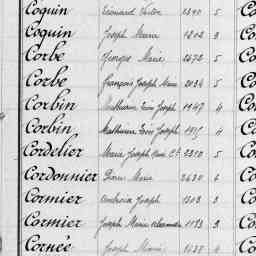 Coquin Edouard Victor 2390 5
Coquin Joseph Marie 1202 3
Corbe Georges Marie 2672 5
Corbe François Joseph Marie 2034 5
Corbin Mathurin 1947 4
Corbin Mathurin Joseph 4
Cordelier Marie Joseph 2310 5
Cordonnier Pierre Marie 2430 6
Cormier Ambroise Joseph 1203 3
Cormier Joseph Marie Alexandre 1193 3
Cornée Joseph Marie 4